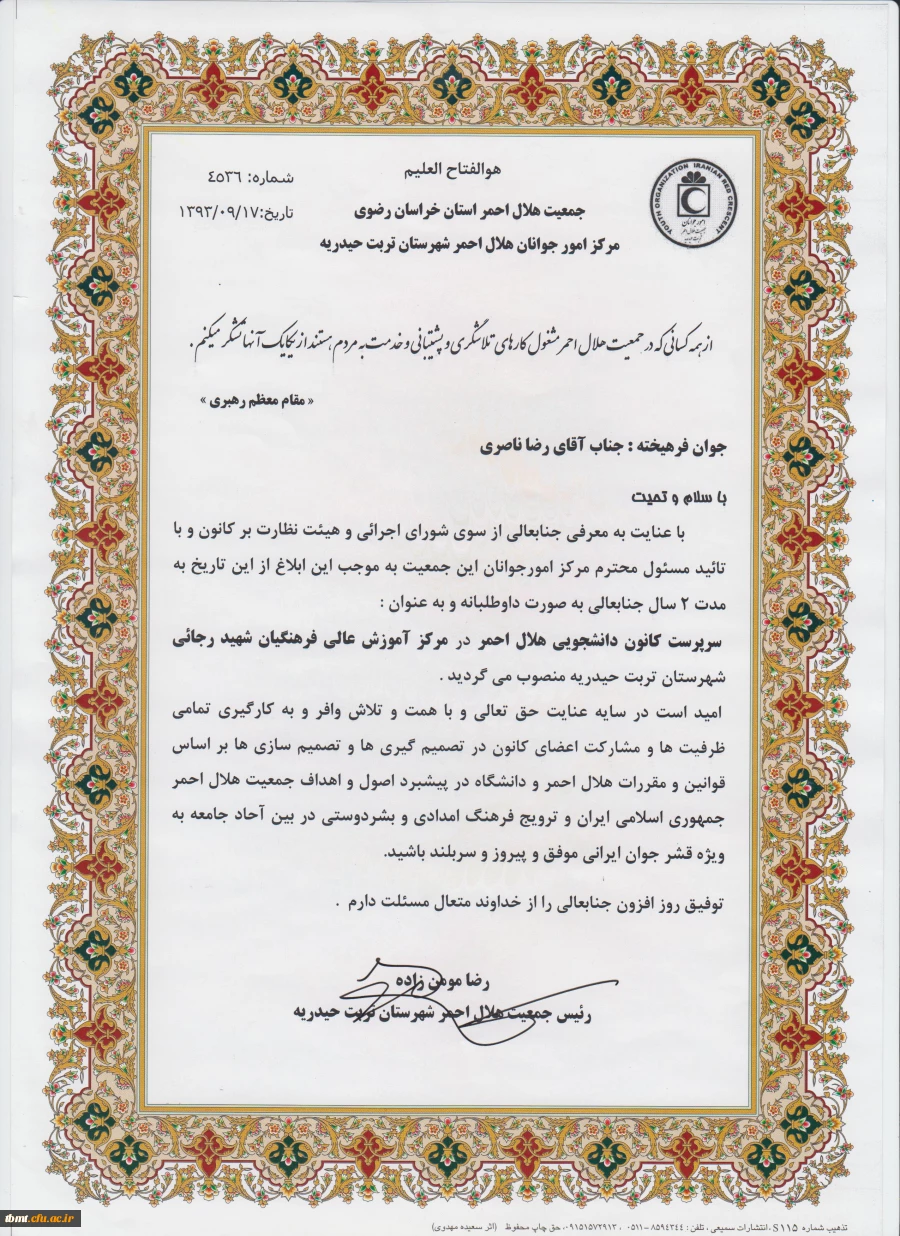 هوالفتاح العلیم
شماره: ٤٥٣٦
جمعیت هلال احمر استان خراسان رضوی
تاریخ:١٣٩٣/٠٩/١٧
مرکز امور جوانان هلال احمر شهرستان تربت حیدریه
YOUTH ORGANIZATION IRANIAN RED CRESCENT
امور جوانان
از همه کسانی که در جمعیت هلال احمر مشغول کارهای تلاشگری و پشتیبانی و خدمت به مردم هستند از یکایک آنها تشکر میکنم .
« مقام معظم رهبری »
جوان فرهیخته : جناب آقای رضا ناصری
با سلام و تحیت
با عنایت به معرفی جنابعالی از سوی شورای اجرائی و هیئت نظارت بر کانون و با
تائید مسئول محترم مرکز امورجوانان این جمعیت به موجب این ابلاغ از این تاریخ به
مدت ۲ سال جنابعالی به صورت داوطلبانه و به عنوان :
سرپرست کانون دانشجویی هلال احمر در مرکز آموزش عالی فرهنگیان شهید رجائی
شهرستان تربت حیدریه منصوب می گردید .
امید است در سایه عنایت حق تعالی و با همت و تلاش وافر و به کارگیری تمامی
ظرفیت ها و مشارکت اعضای کانون در تصمیم گیری ها و تصمیم سازی ها بر اساس
قوانین و مقررات هلال احمر و دانشگاه در پیشبرد اصول و اهداف جمعیت هلال احمر
جمهوری اسلامی ایران و ترویج فرهنگ امدادی و بشردوستی در بین آحاد جامعه به
ویژه قشر جوان ایرانی موفق و پیروز و سربلند باشید.
توفیق روز افزون جنابعالی را از خداوند متعال مسئلت دارم .
رضا مومن زاده
رئیس جمعیت هلال احمر شهرستان تربت حیدریه
تذهیب شماره S۱۱۵ ، انتشارات سمیعی ، تلفن : ۸۵۹۴۳۴۴ - ۰۵۱۱ ، ۰۹۱۵۱۵۷۲۹۱۳، حق چاپ محفوظ (اثر سعیده مهدوی)
tbmt.cfu.ac.ir